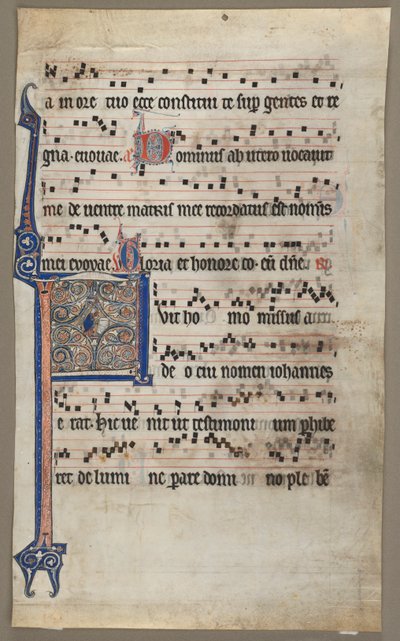 a in ore tuo ecce constitui te sup gentes et re
gna. euouae. a Dominus ab utero uocauit
me de uentre matris mee recordatus est nominis
mei evovae. Gloria et honore co. eū dñe.
Fuit ho mo missus a
de o cui nomen iohannes
e rat. Hic ue nit ut testimoni um phibe
ret de lumi ne parare domi no ple bē